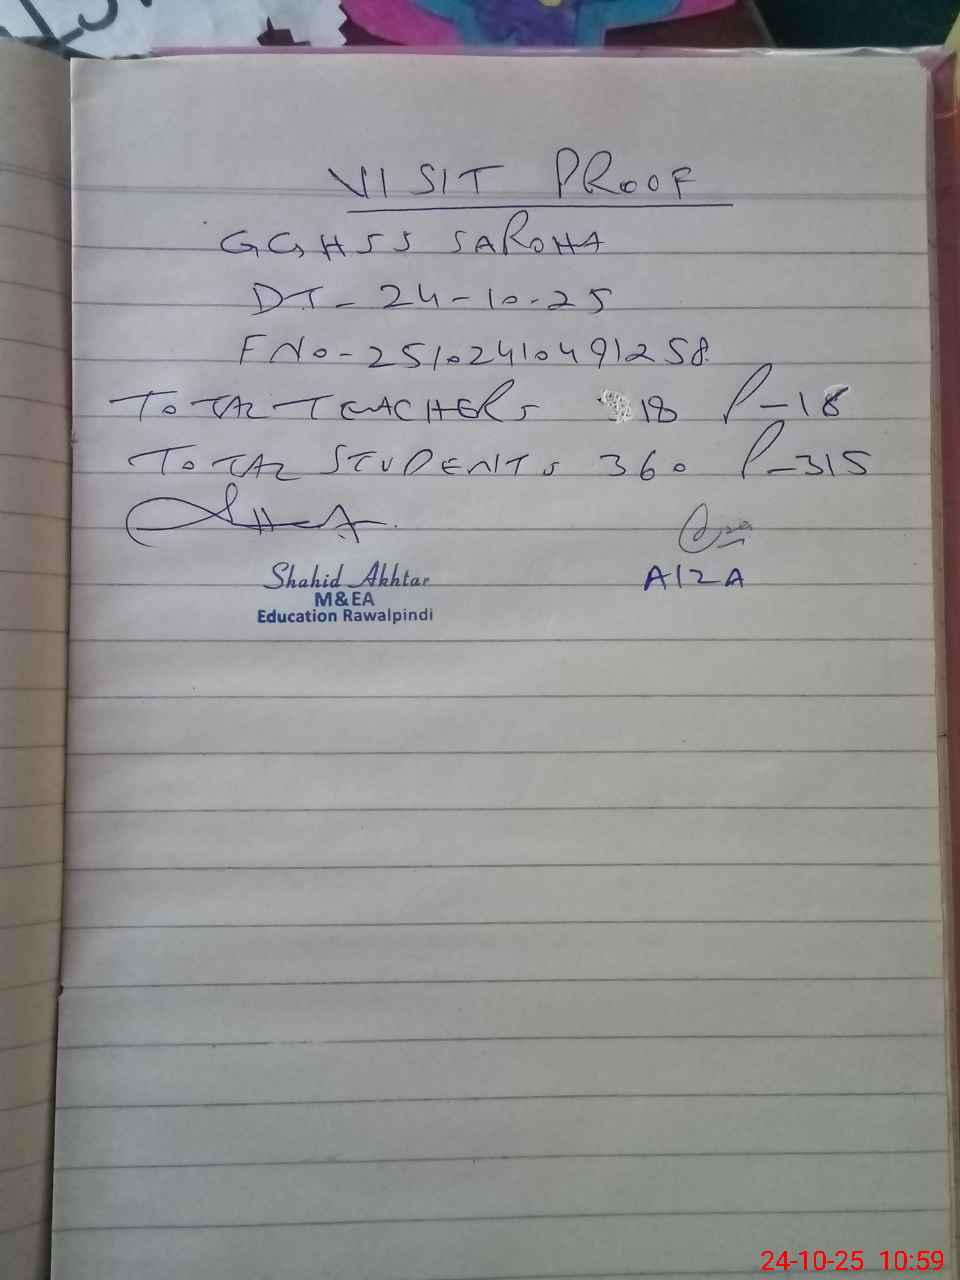 VISIT PROOF
GGHSS SAROHA
DT- 24-10-25
FNo- 25102410491258
TOTAL TEACHERS 18 P-18
TOTAL STUDENTS 360 P-315
Shahid Akhtar
M&EA
Education Rawalpindi
AIZA
24-10-25 10:59